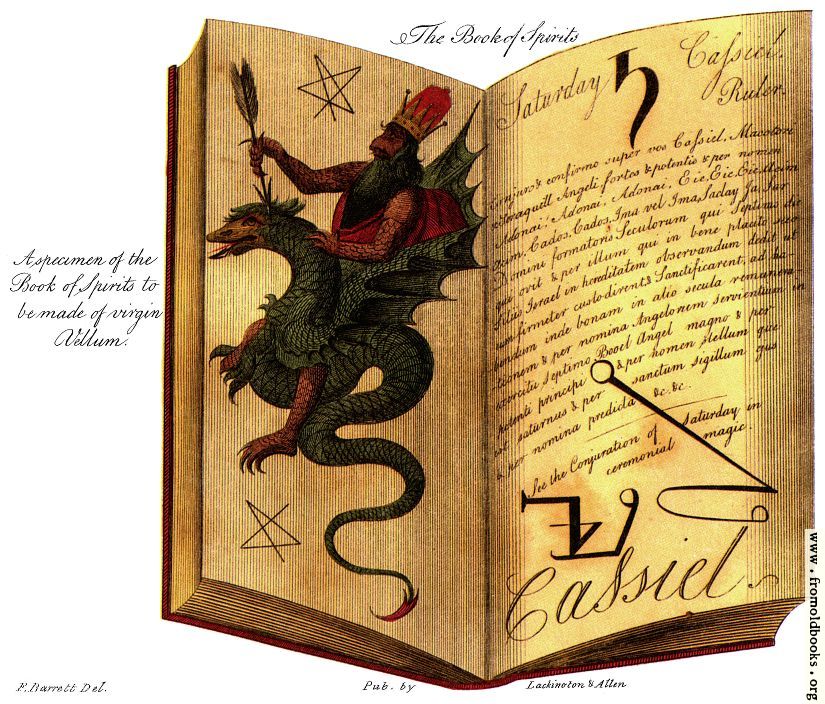 The Book of Spirits
Saturday
Cassiel.
Ruler.
A specimen of the
Book of Spirits to
be made of virgin
Vellum.
conjuro & confirmo super vos Cassiel, Macotori
Seraquill, Angeli fortes & potentis & per nomen
Adonai, Adonai, Adonai, Eie, Eie, Eie,
Cados, Cados, Ima vel Ima, Saday Ja, Sar
Domini formatoris Seculorum qui Septimo die
qui ovit & per illum qui in bene placito suo
filiis Israel in hereditatem observandum dedit ut
eum firmiter custodirent & Sanctificarent, ad ha-
bendum inde bonam in alio secula remunera
tionem & per nomina Angelorem servientium in
exercitu Septimo Booel Angel magno & per
potenti principi & per homen stellum que
est saturnus & per sanctum sigillum ejus
& per nomina predicta &c. &c.
See the Conjuration of Saturday in
ceremonial magic.
Cassiel.
F. Barrett Del.
Pub. by
Lackington & Allen
www.fromoldbooks.org